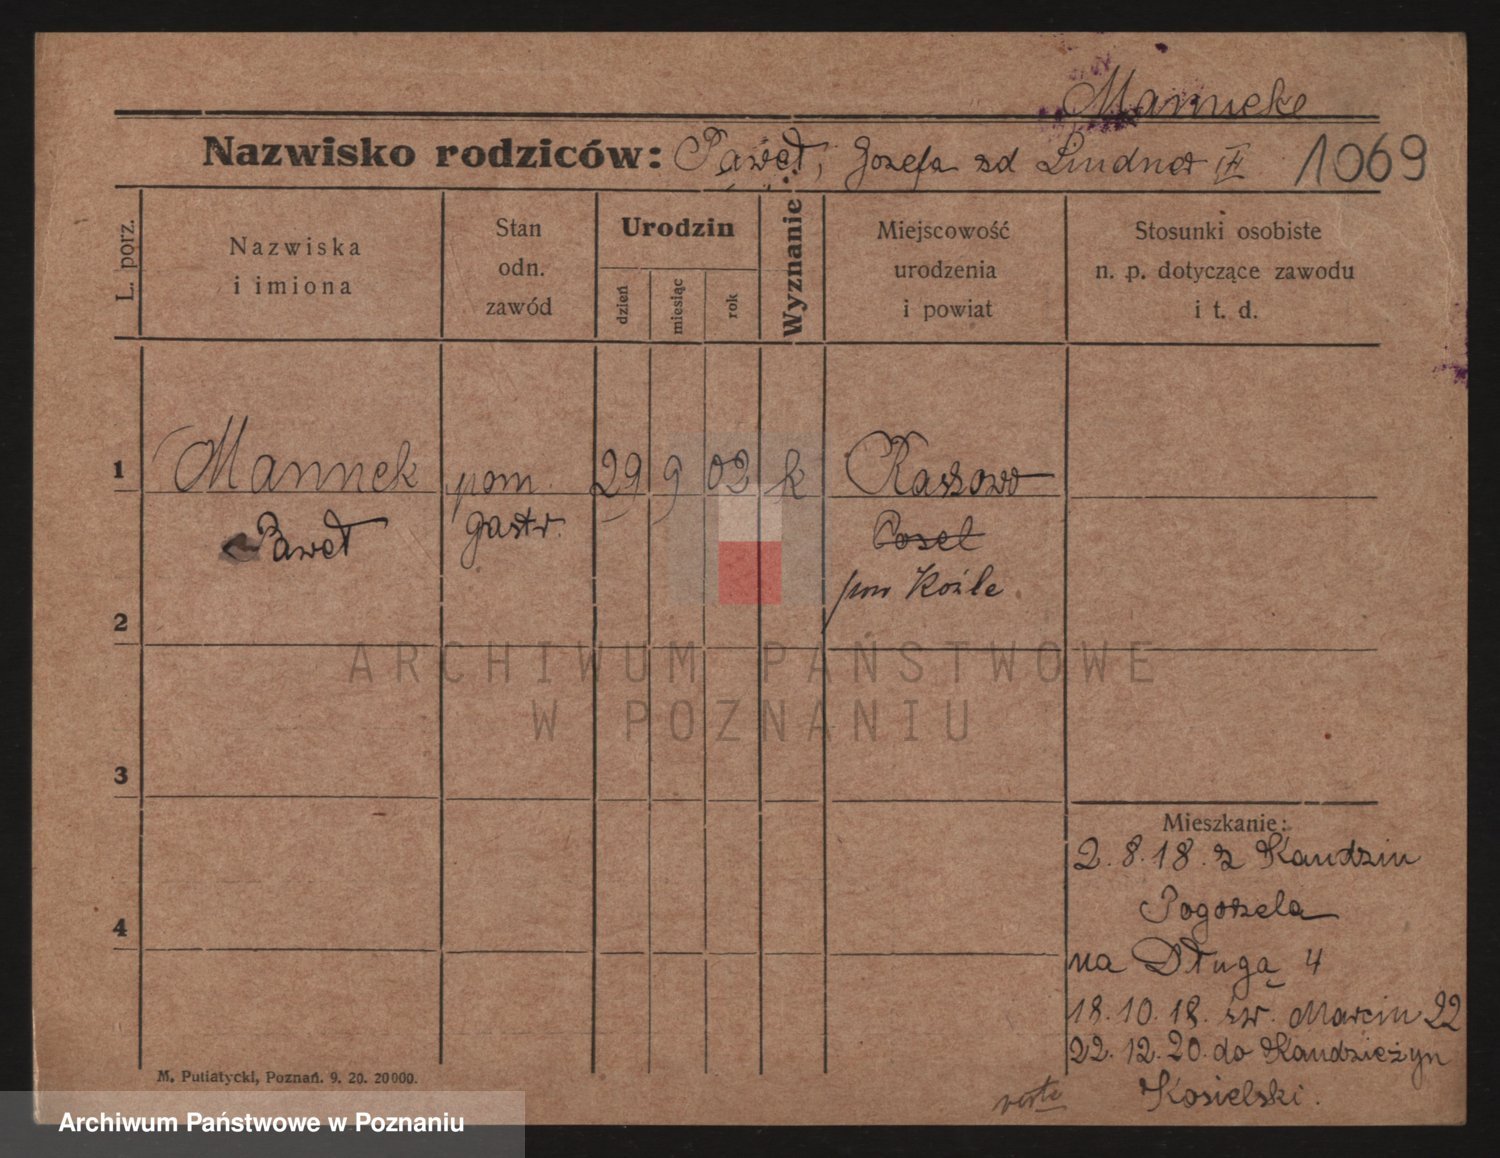 Manncke
Nazwisko rodziców: Paweł, Jozefa zd Lindner 1069
L. porz.
Nazwiska
i imiona
Stan
odn.
zawód
Urodzin
dzień
miesiąc
rok
Wyznanie
Miejscowość
urodzenia
i powiat
Stosunki osobiste
n. p. dotyczące zawodu
i t. d.
1 Mannek pom. 29 9 02 k Raszowo
Paweł gastr. Posel
pow Koźle
2
ARCHIWUM PAŃSTWOWE
W POZNANIU
3
4
Mieszkanie:
2.8.18. z Kandzin
Pogorzela
na Długą 4
18.10.18. św. Marcin 22
22.12.20. do Kandzieżyn
Kosielski.
verte
M. Putiatycki, Poznań. 9. 20. 20000.
Archiwum Państwowe w Poznaniu